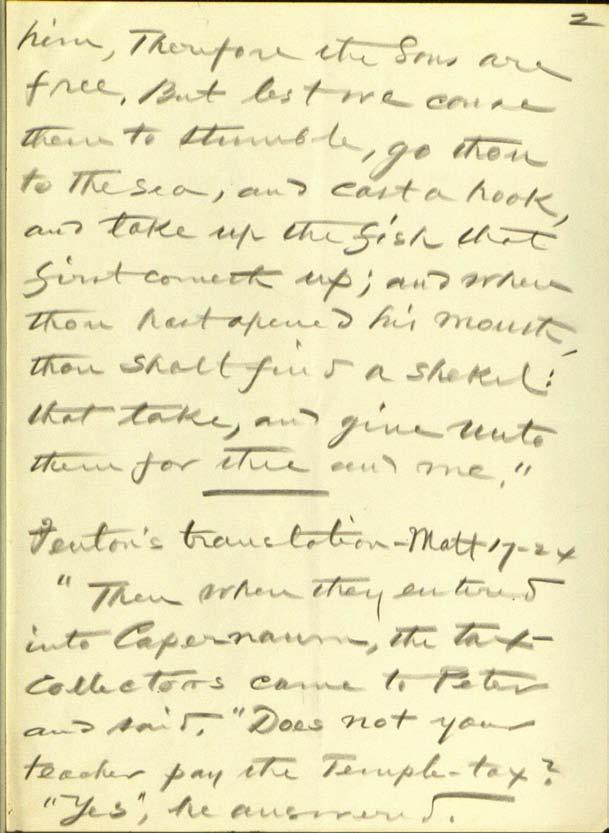 2
him, Therefore the Sons are
free. But lest we cause
them to stumble, go thou
to the sea, and cast a hook,
and take up the fish that
first cometh up; and when
thou hast opened his mouth,
thou shalt find a shekel:
that take, and give unto
them for thee and me."
Fenton's translation - Matt 17-24
"Then when they entered
into Capernaum, the tax-
collectors came to Peter
and said. "Does not your
teacher pay the Temple-tax?
"Yes", he answered.